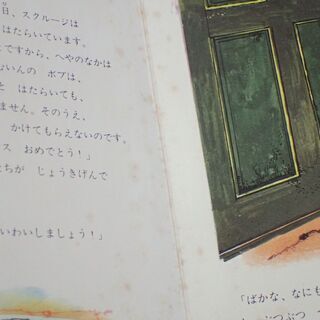 日、スクルージは
はたらいています。
ですから、へやのなかは
いんの ボブは、
と はたらいても、
ません。そのうえ、
かけてもらえないのです。
ス おめでとう！」
ちが じょうきげんで
いわいしましょう！」
「ばかな、なにも
ぶつぶつ